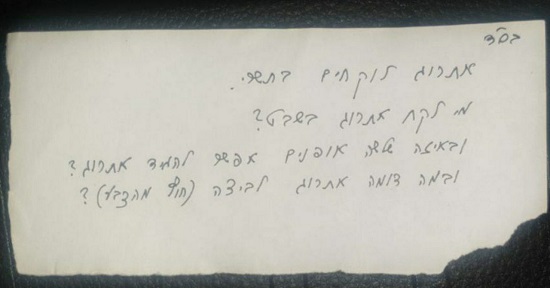 בס"ד
אתרוג לוקחים בתשרי.
מי לקח אתרוג בשבט?
ובאיזה שלשה אופנים אפשר להמיד אתרוג?
ובמה דומה אתרוג לביצה (חוץ מהצבע)?